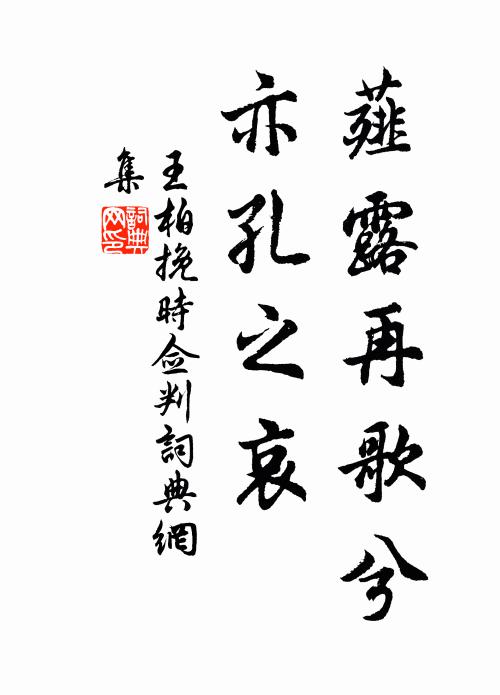 薤露再歌兮
亦孔之哀
王柏挽時僉判詞典網
集
詞典
网印